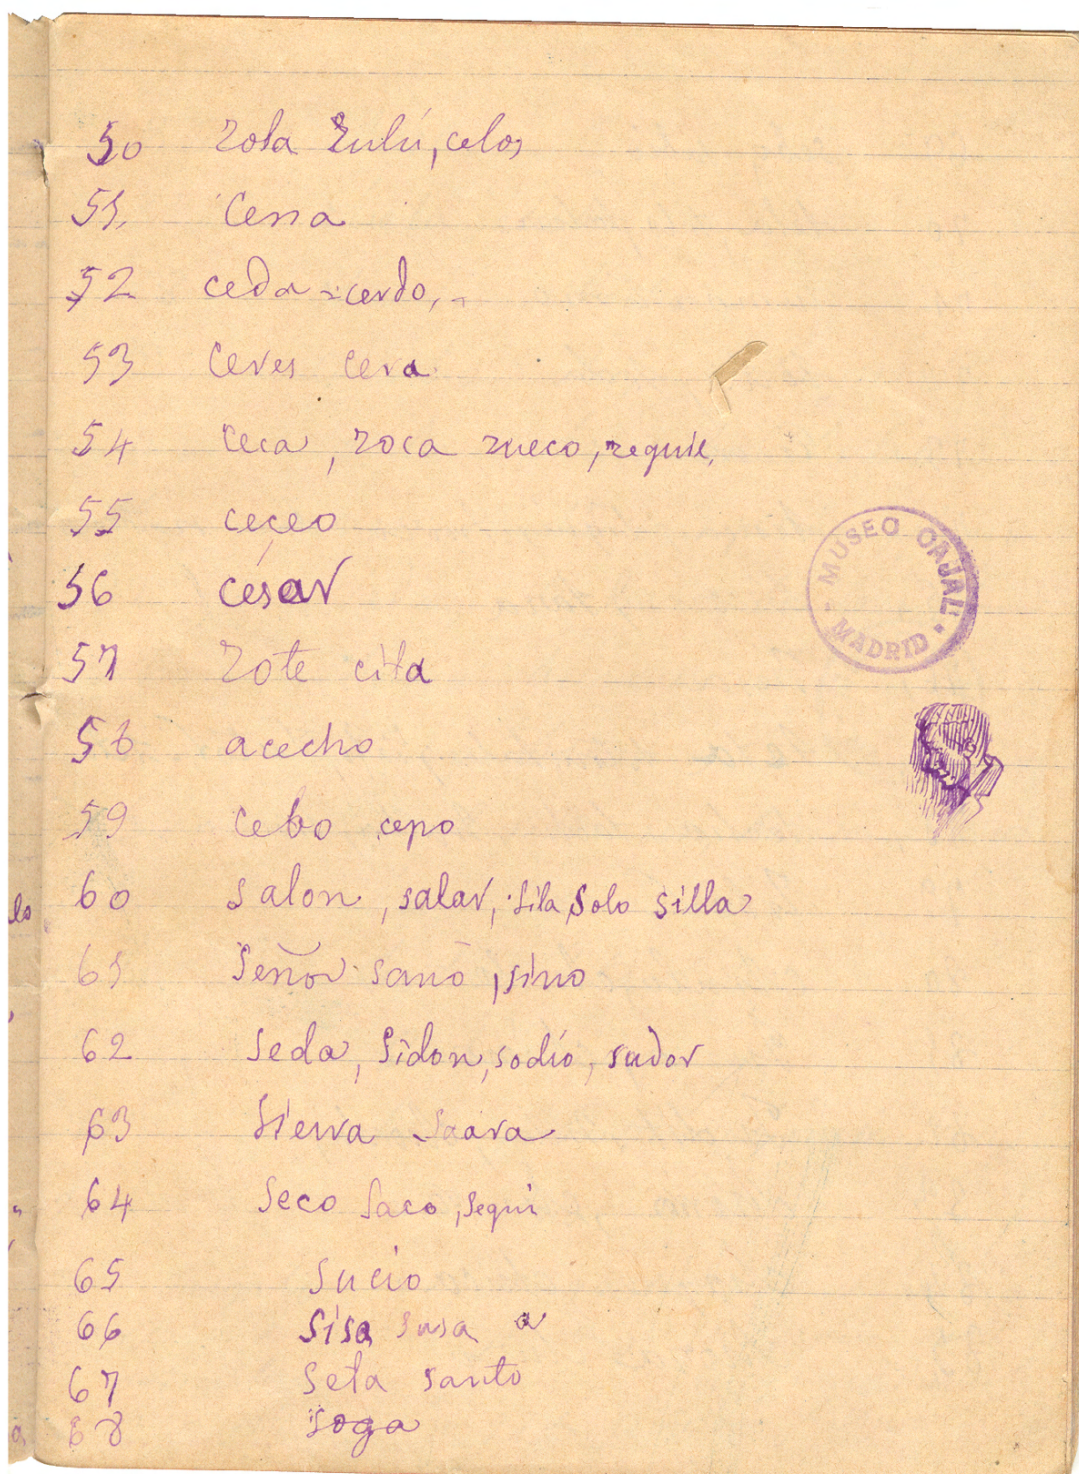 50 Zola Zulú, celos
51. Cena
52 ceda - cerdo, -
53 Ceres cera
54 Ceca, zoca zueco, zequie,
55 ceceo
56 César
57 Zote cita
58 acecho
59 Cebo cepo
60 Salon, salar, Sila Solo Silla
61 Señor sano, sino
62 Seda, Sidon, sodio, sudor
63 Sierra Saara
64 Seco Saco, Segui
65 Sucio
66 Sisa Susa a
67 Seta Santo
68 Soga
MUSEO CAJAL
MADRID
lo